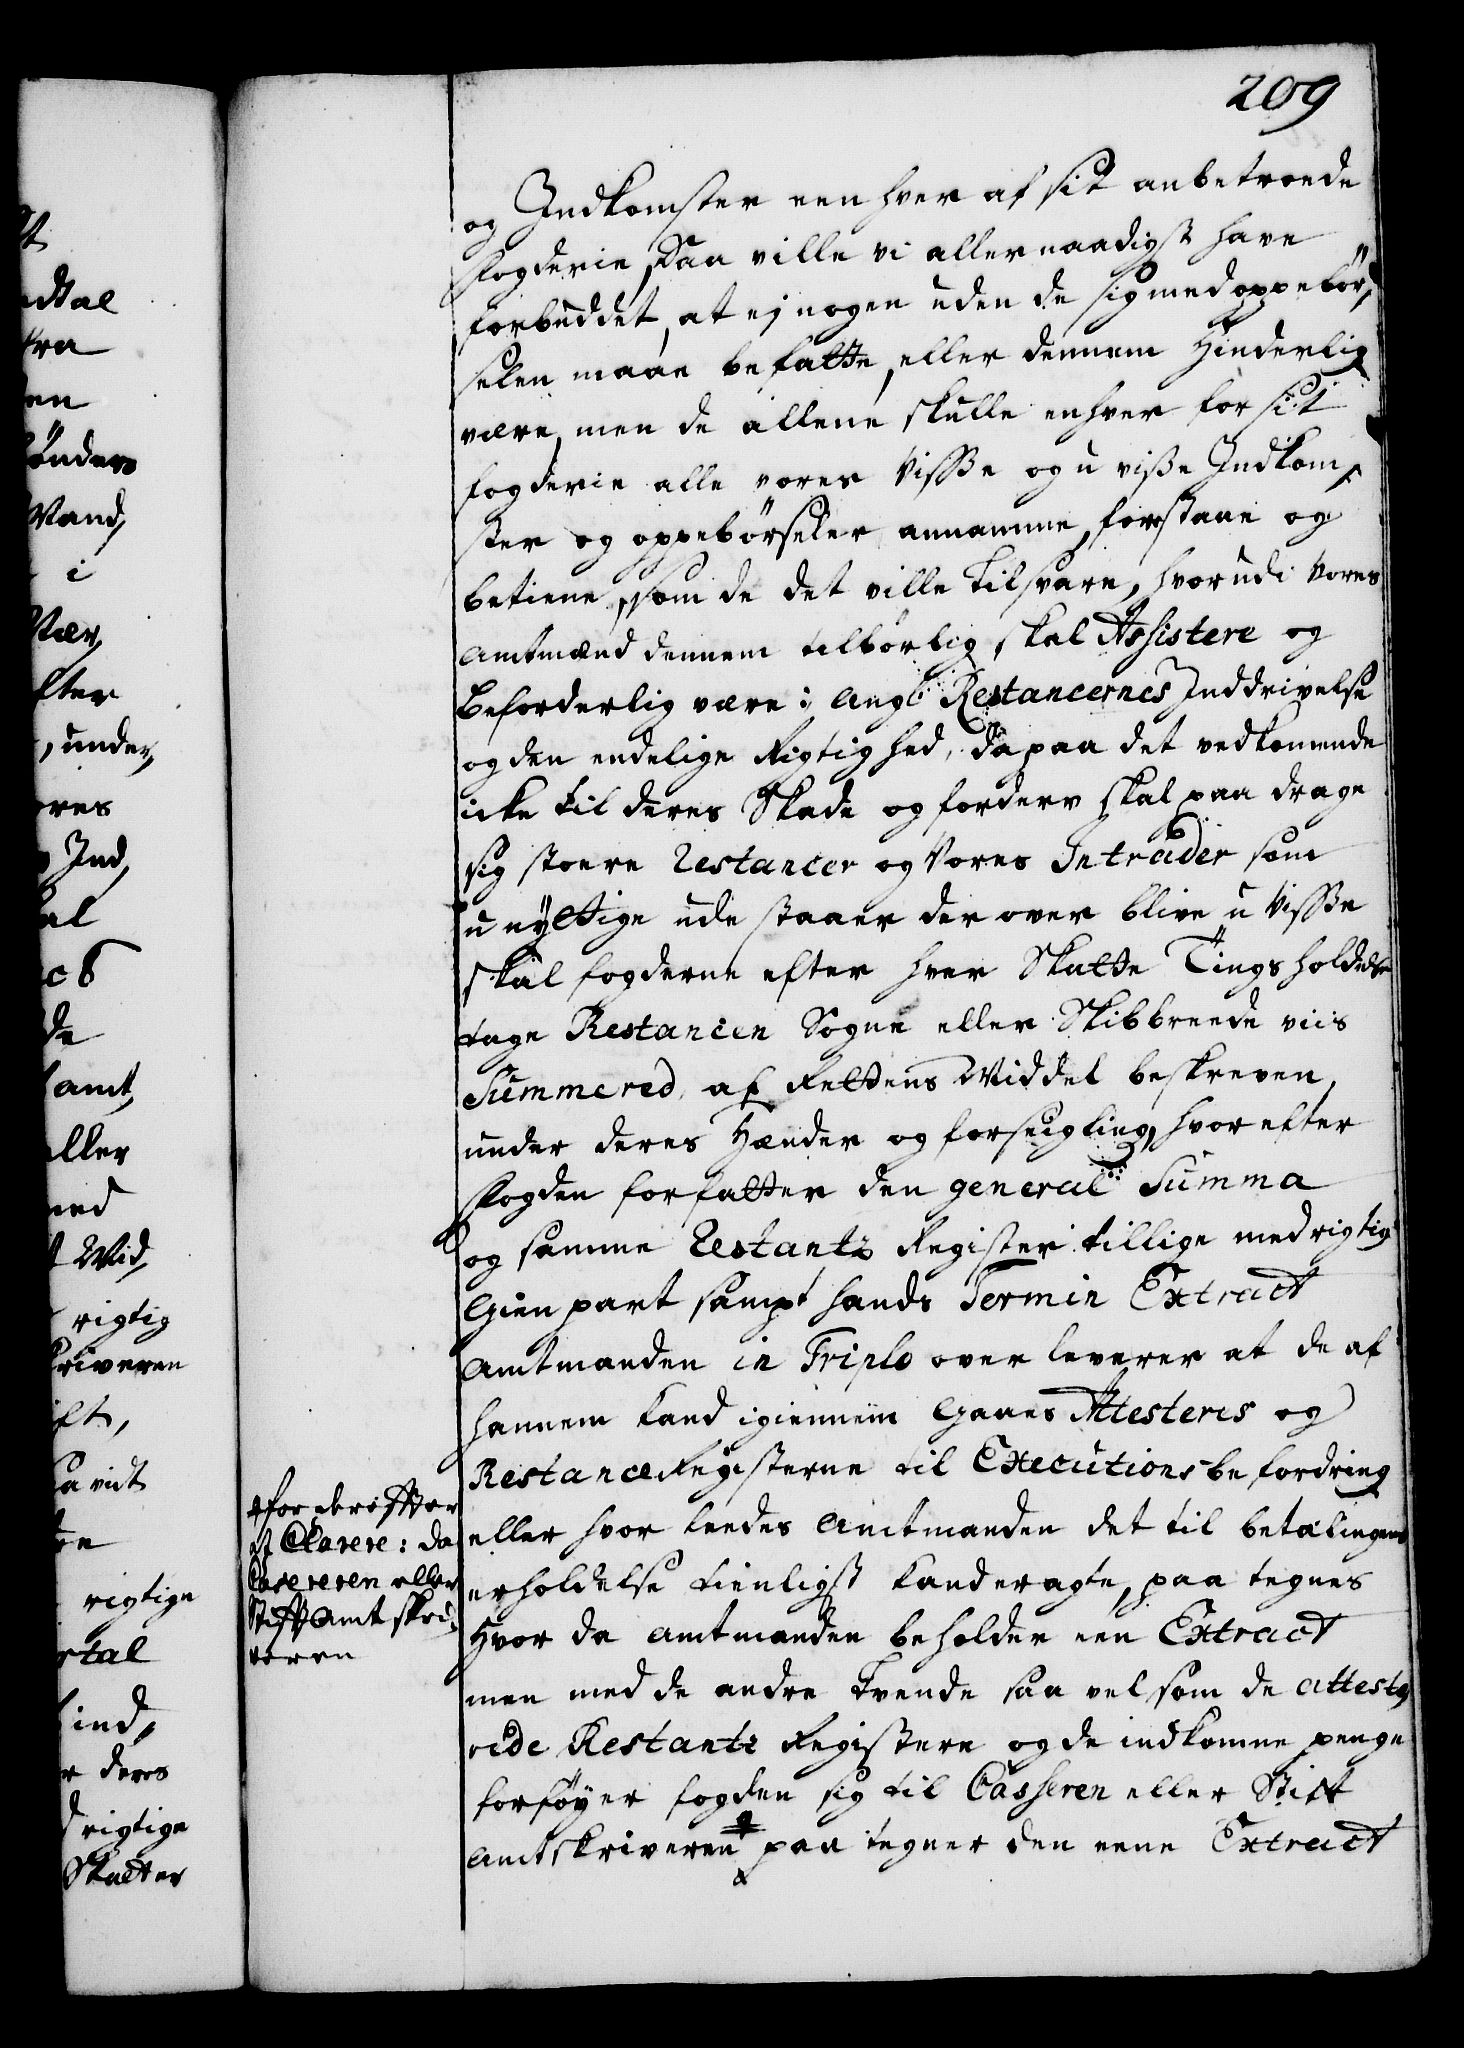 209
og Indkomster een hver af sit anbetroede
fogderie, Saa ville vi allernaadigst have
forbuddet, at ej nogen uden de sig med oppebör,
selen maae befatte, eller dennem Hinderlig
være, men de allene skulle enhver for sit
fogderie alle vores Visse og u visse Indkom,
ster og oppebörseler annamme, forstaae og
betiene, som de det ville tilsvare, hvorudi Vores
amtmænd dennem tilbörlig skal Assistere og
beforderlig være: ang: Restancernes Inddrivelse
og den endelige Rigtighed, da paa det vedkomende
icke til deres Skade og forderv skal paa drage
sig stoere Restancer og Vores Intrader som
u nyttige ude staaer der over blive u Visse
skal fogderne efter hver Skatte Tings holdelse
tage Restancen Sogne eller Skibbreede viis
Summered, af Rettens Middel beskreven,
under deres Hænder og forseigling, hvorefter
fogden forfatter den general Summa
og samme Restantz Register tillige med rigtig
Gienpart sampt hands Termin Extract
amtmanden in Triplo over leverer at de af
hannem kand igiennem gaaes Attesteris og
Restance Registerne til Executions befordring
eller hvor leedes amtmanden det til betalingens
erholdelse tienligst kand eragte, paa tegnes
Hvor da amtmanden beholder een Extract
men med de andre tvende saa vel som de atteste,
rede Restantz Registere og de indkomne penge
forföyer fogden sig til Casseren eller Stift
amtskriveren paa tegner den eene Extract
for derefter
at Clarere: da
Casereren eller
Stift Amt skri,
veren